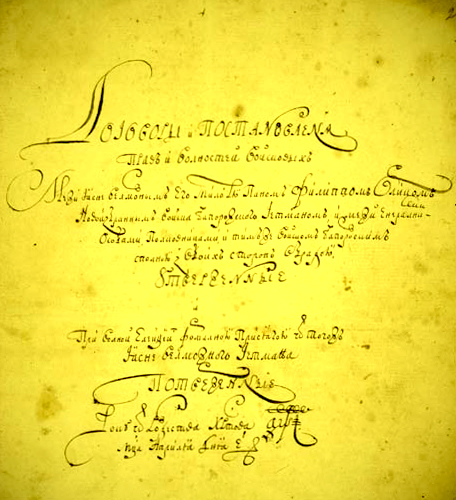 Договоры и постановленя
Правъ и волностей войсковыхъ
Межи Ясне велможнымъ Его Милостю Паномъ Филиппомъ Орликомъ
Новообраннымъ Войска Запорозкого Гетманомъ, и межи Енерални-
ми
Особами Полковниками и тимъ же Войскомъ Запорозкимъ
сполною з обоихъ сторонъ обрадою,
Утверженные
и
При волной Елекцыи формалною Присягою ѿ тогожъ
Ясне велможного Гетмана
Потверженные
Року ѿ Рожества Христова ҂аѱі
мца Априля дня є҃